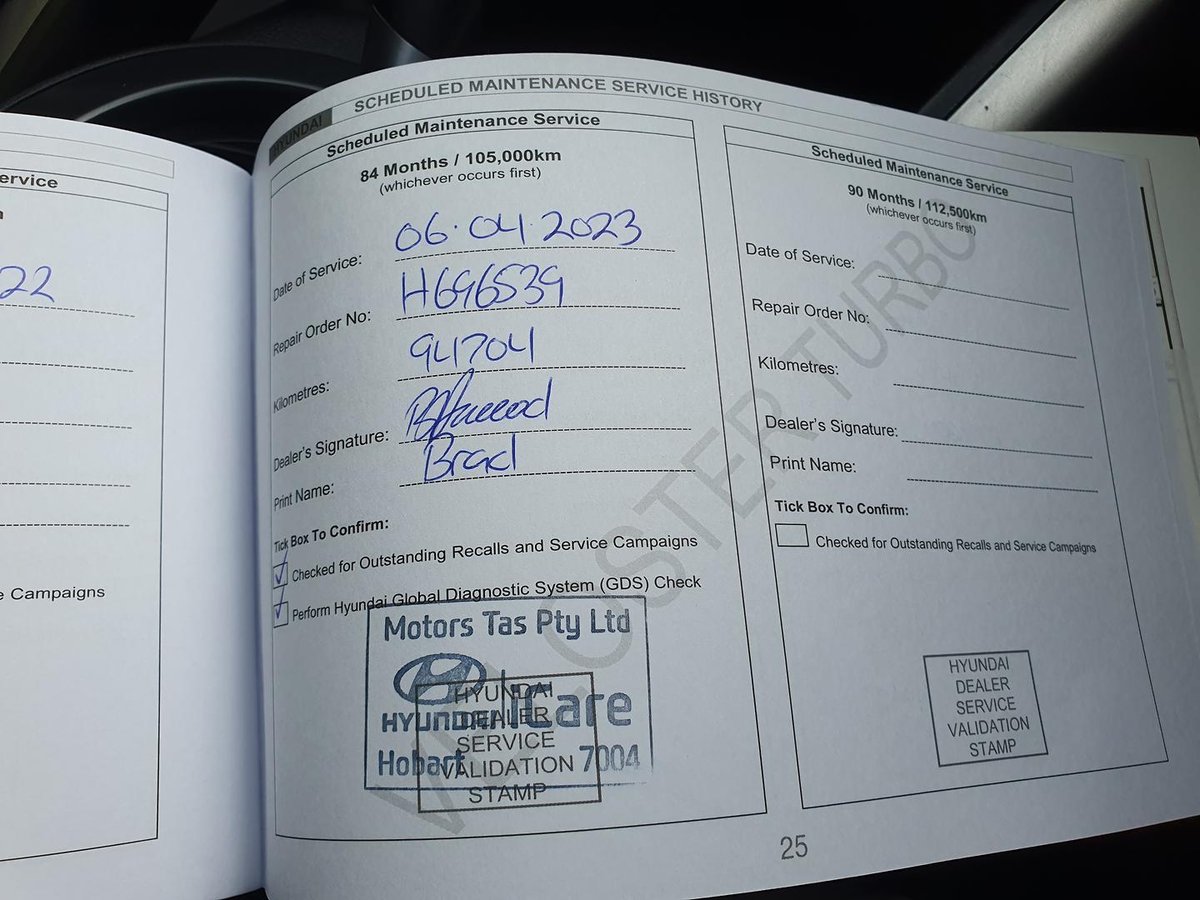 ervice
22
e Campaigns
HYUNDAI
SCHEDULED MAINTENANCE SERVICE HISTORY
Scheduled Maintenance Service
84 Months / 105,000km
(whichever occurs first)
Date of Service: 06.04.2023
Repair Order No: H696539
Kilometres: 94704
Dealer's Signature:
Print Name: Brad
Tick Box To Confirm:
Checked for Outstanding Recalls and Service Campaigns
Perform Hyundai Global Diagnostic System (GDS) Check
Motors Tas Pty Ltd
HYUNDAI iCare
Hobart 7004
HYUNDAI
DEALER
SERVICE
VALIDATION
STAMP
VELOSTER TURBO
Scheduled Maintenance Service
90 Months / 112,500km
(whichever occurs first)
Date of Service:
Repair Order No:
Kilometres:
Dealer's Signature:
Print Name:
Tick Box To Confirm:
Checked for Outstanding Recalls and Service Campaigns
HYUNDAI
DEALER
SERVICE
VALIDATION
STAMP
25